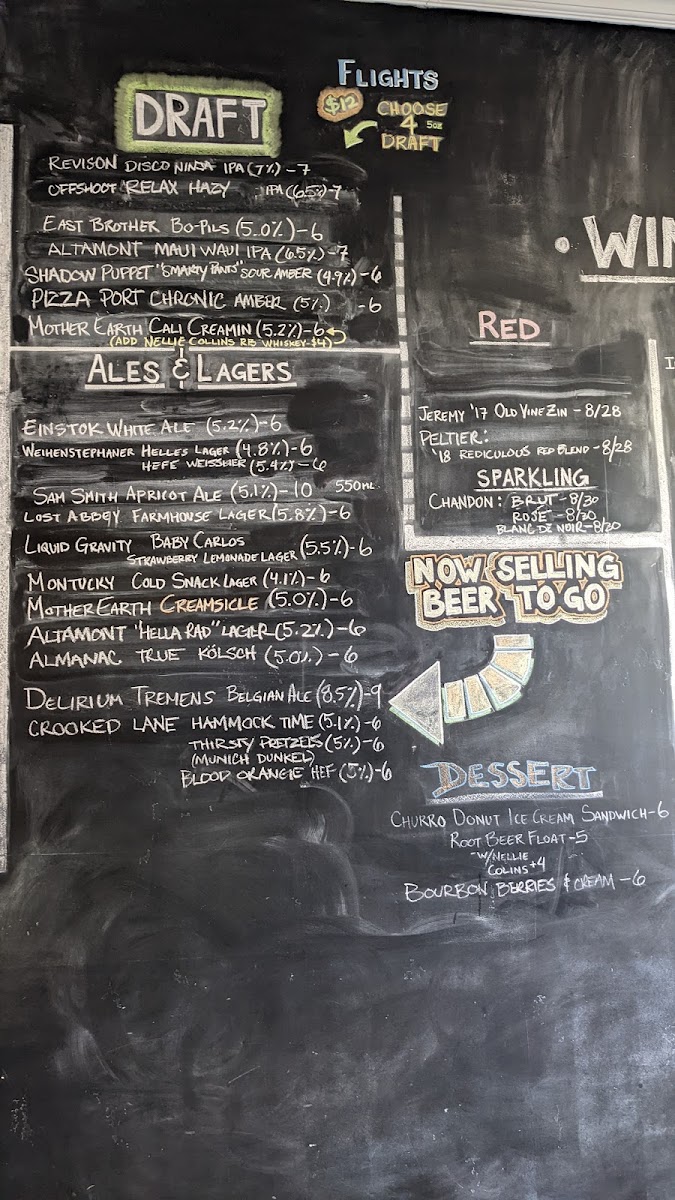 FLIGHTS
$12
CHOOSE
4 5oz
DRAFT
DRAFT
REVISON DISCO NINJA IPA (7%) - 7
OFFSHOOT "RELAX HAZY IPA (6.5%) - 7
EAST BROTHER BO-PILS (5.0%) - 6
ALTAMONT MAUI WAUI IPA (6.5%) - 7
SHADOW PUPPET "SMARTY PANTS" SOUR AMBER (4.9%) - 6
PIZZA PORT CHRONIC AMBER (5%) - 6
MOTHER EARTH CALI CREAMIN (5.2%) - 6
(ADD NELLIE COLLINS RB WHISKEY $4)
ALES & LAGERS
EINSTOK WHITE ALE (5.2%) - 6
WEIHENSTEPHANER HELLES LAGER (4.8%) - 6
HEFE WEISSBIER (5.4%) - 6
SAM SMITH APRICOT ALE (5.1%) - 10 550ML
LOST ABBEY FARMHOUSE LAGER (5.8%) - 6
LIQUID GRAVITY BABY CARLOS
STRAWBERRY LEMONADE LAGER (5.5%) - 6
MONTUCKY COLD SNACK LAGER (4.1%) - 6
MOTHER EARTH CREAMSICLE (5.0%) - 6
ALTAMONT "HELLA RAD" LAGER (5.2%) - 6
ALMANAC TRUE KÖLSCH (5.0%) - 6
DELIRIUM TREMENS BELGIAN ALE (8.5%) - 9
CROOKED LANE HAMMOCK TIME (5.1%) - 6
THIRSTY PRETZELS (5%) - 6
(MUNICH DUNKEL)
BLOOD ORANGE HEF (5%) - 6
WIN
RED
JEREMY '17 OLD VINE ZIN - 8/28
PELTIER:
'18 REDICULOUS RED BLEND - 8/28
SPARKLING
CHANDON: BRUT - 8/30
ROSE - 8/30
BLANC DE NOIR - 8/30
NOW SELLING
BEER TO GO
DESSERT
CHURRO DONUT ICE CREAM SANDWICH - 6
ROOT BEER FLOAT - 5
- W/ NELLIE
COLINS +4
BOURBON BERRIES & CREAM - 6